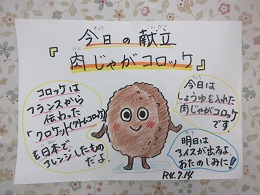 今日の献立
『肉じゃがコロッケ』
コロッケは
フランスから
伝わった
を日本で
アレンジしたもの
だよ。
今日は
しょうゆを入れた
肉じゃがコロッケ
です。
明日は
アイスが出るよ
おたのしみに!
R4.7.14